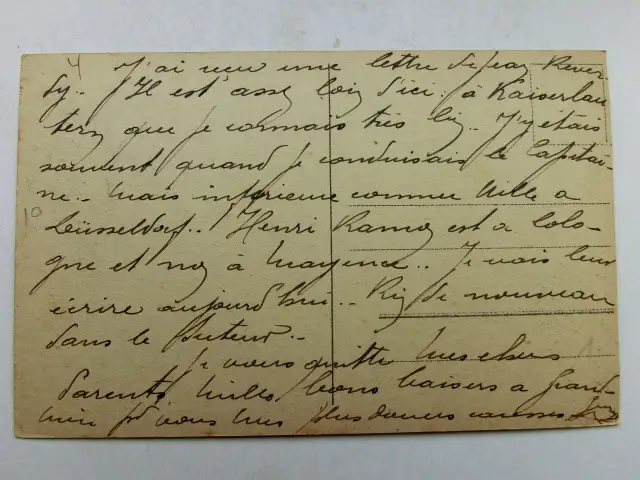 J'ai reçu une lettre de Jean Rever-
dy.. Il est assez loin d'ici à Kaiserlau
tern que je connais très bien.. J'y étais
souvent quand je conduisais le Capitai-
ne.. mais inférieure comme ville a
Düsseldorf.. Henri Ramoz est a Colo-
gne et non à Mayence.. Je vais leur
écrire aujourd'hui.. Rien de nouveau
dans le secteur..
Je vous quitte mes chers
Parents. Milles bons baisers a Grand-
mère et vous mes plus douces caresses